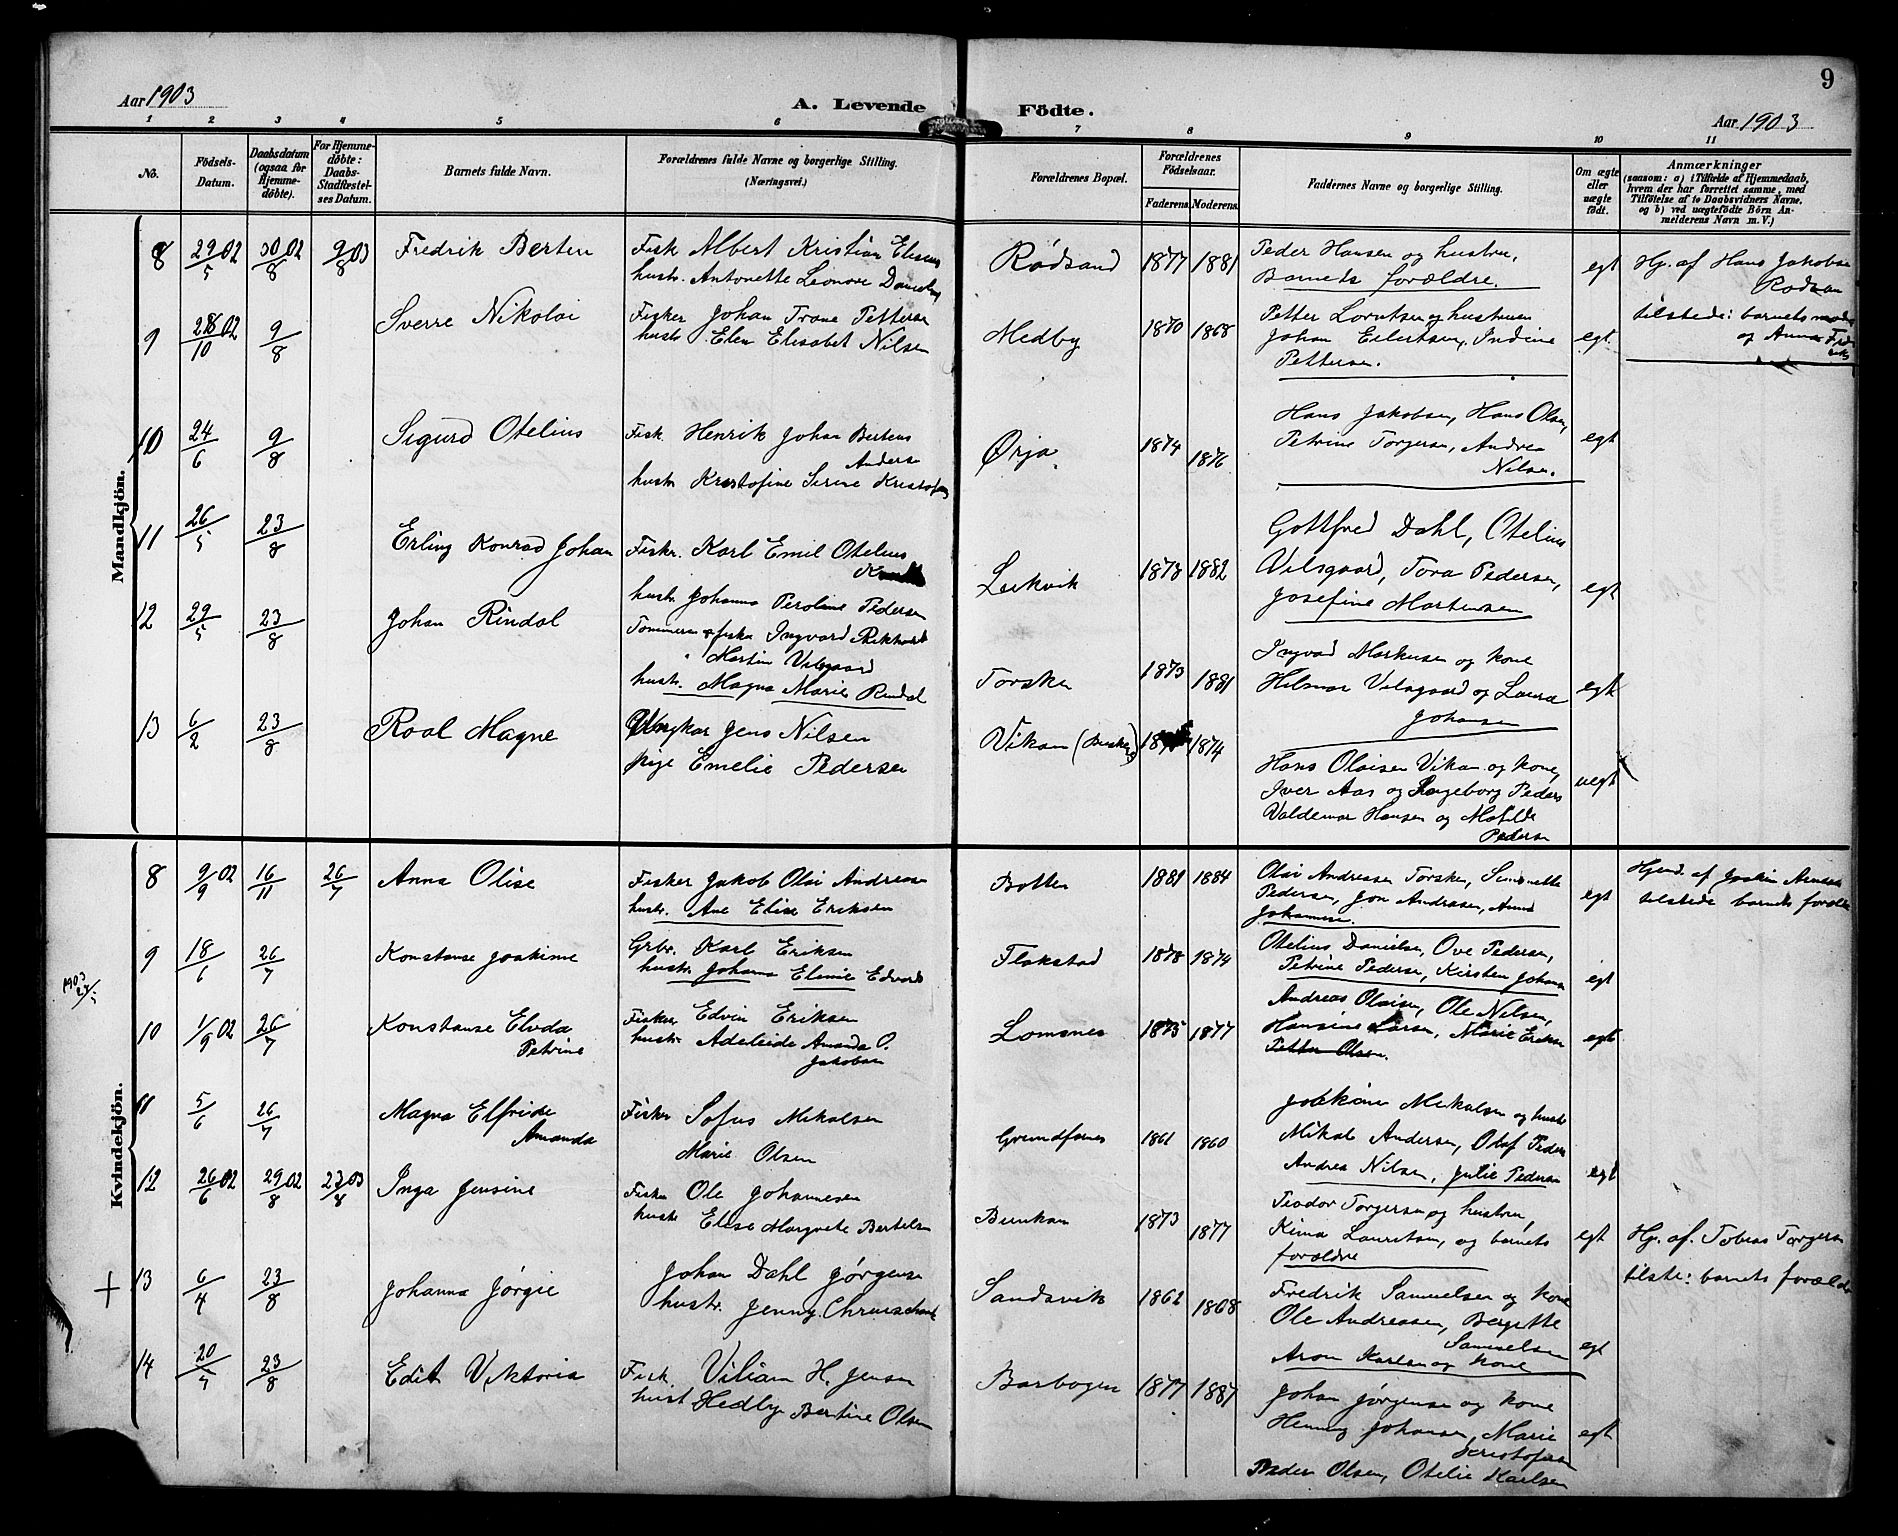 9
Aar 1903
A. Levende Födte.
Aar 1903
1 2 3 4 5 6 7 8 9 10 11
No.
Födsels-Datum.
Daabsdatum (ogsaa for Hjemmedöbte).
For Hjemmedöbte: Daabs-Stadfestelses Datum.
Barnets fulde Navn.
Forældrenes fulde Navne og borgerlige Stilling. (Næringsvei.)
Forældrenes Bopæl.
Forældrenes Födselsaar.
Faderens. Moderens.
Faddernes Navne og borgerlige Stilling.
Om ægte eller uægte födt.
Anmærkninger
(saasom: a) i Tilfælde af Hjemmedaab, hvem der har forrettet samme, med Tilföielse af to Daabsvidners Navne, og b) ved uægtefödte Börn Anmelderens Navn m. V.)
Mandkjön.
8 29/5 02 30/8 02 9/8 03 Fredrik Berten
Fisk Albert Kristian
hustr. Antonette Leonore
Rødsand 1877 1881
Peder Hansen og hustru,
Barnets forældre.
egt
Hj. af Hans Jakobse
tilstede: barnets
og Anna
9 /10 02 9/8 Sverre Nikolai
Fisker Johan Trane
hustr Elen Elisabet Nilsen
Medby 1870 1868
Petter Lorntsen og hustruen
Johan Eilertsen, Indine
Pettersen.
egt.
10 24/6 9/8 Sigurd Otelius
Fisk. Henrik Johan Bertens
Anderse
hustr Kristofine Serine
Ørja 1874 1876
Hans Jakobsen, Hans Olsen,
Petrine Torgersen, Andrea
Nilsen.
egt
11 26/5 23/8 Erling Konrad Johan
Fiskr. Karl Emil Otelius
hustr Johanna Peroline Pedersen
Leikvik 1878 1882
Gottfred Dahl, Otelius
Vilsgaard, Tora Pedersen,
Josefine Mortensen
egt
12 29/5 23/8 Johan Rindal
fisker Ingvard
Martin Vilsgaard
hustr. Magna Marie Rindal
Torsken 1873 1881
Ingvad Markusen og kone
Hilmar Vilsgaard og Laura
Johansen
egt
13 6/2 23/8 Roal Magne
Ungkar Jens Nilsen
pige Emelie Pedersen
Vikan 1874
Hans Olaisen Vikan og kone,
Iver Aas og Ingeborg Peders
Valdemar Hansen og Matilde
Pedersen
uegt
Kvindekjön.
8 9/9 02 16/11 26/7 Anna Olise
Fisker Jakob Olai Andreasen
hustr. Ane Elise Eriksen
Botten 1881 1884
Olai Andreasen Torsken,
Pedersen, Jon Andreasen, Anna
Johannese.
egt
Hjemd. af
tilstede barnets forældre
9 18/6 26/7 Konstanse Joakime
Grbr. Karl Eriksen
hustr. Johanna Elenie
Flakstad 1878 1874
Otelius Danielsen, Ove Pedersen,
Petrine Pedersen, Kirsten
egt
1903
10 1/9 02 26/7 Konstanse Elvda
Petrine
Fisker Edvin Eriksen
hustr. Adeleide Amanda O.
Jakobsen
Lomsnes 1875 1877
Andreas Olaisen, Ole Nilsen,
Hansine Larsen, Marie Eriksen
Petter Olsen.
egt
11 5/6 26/7 Magna Elfride
Amanda
Fisker Sofus Mikalsen
Marie Olsen
Grundfarnes 1861 1860
Mikalsen og hustr
Mikal Andersen, Olaf Peders
Andrea Nilsen, Julie Pedersen
egt
12 26/6 02 29/8 02 23/8 03 Inga Jensine
Fisker Ole Johannesen
hustr Elise Margrete Bertelsen
Bunkan 1873 1877
Teodor Torgersen og hustruen,
Kima Lauritsen, og barnets
forældre
egt
Hj. af. Tobias Torgersen
tilste: barnets forældre
+
13 6/4 23/8 Johanna Jørgie
Johan Dahl Jørgense
hustr. Jenny
Sandsvik 1862 1868
Fredrik Samuelsen og kone
Ole Andreassen, Bergitte
Samuelsen
Aron Karlsen og kone
egt
14 20/7 23/8 Edit Viktoria
Fisk. Viliam H. Jensen
hust Hedby Bertine Olsen
Barbogen 1877 1887
Johan Jørgensen og kone
Henning Johansen, Marie
Kristofersen
Peder Olsen, Otelie Karlsen
egt